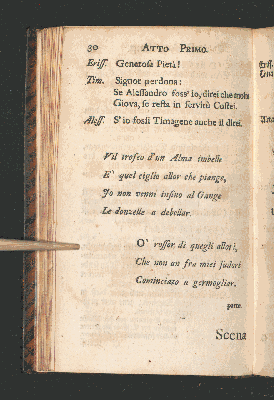 30 ATTO PRIMO.
Eriss. Generosa Pietà!
Tim. Signor perdona:
Se Alessandro foss' io, direi che molto
Giova, se resta in servitù Costei.
Aless. S'io fossi Timagene anche il direi.
Vil trofeo d'un Alma imbelle
E' quel ciglio allor che piange,
Io non venni insino al Gange
Le donzelle a debellar.
O' rossor di quegli allori,
Che non an fra miei sudori
Cominciato a germogliar.
parte.
Scena